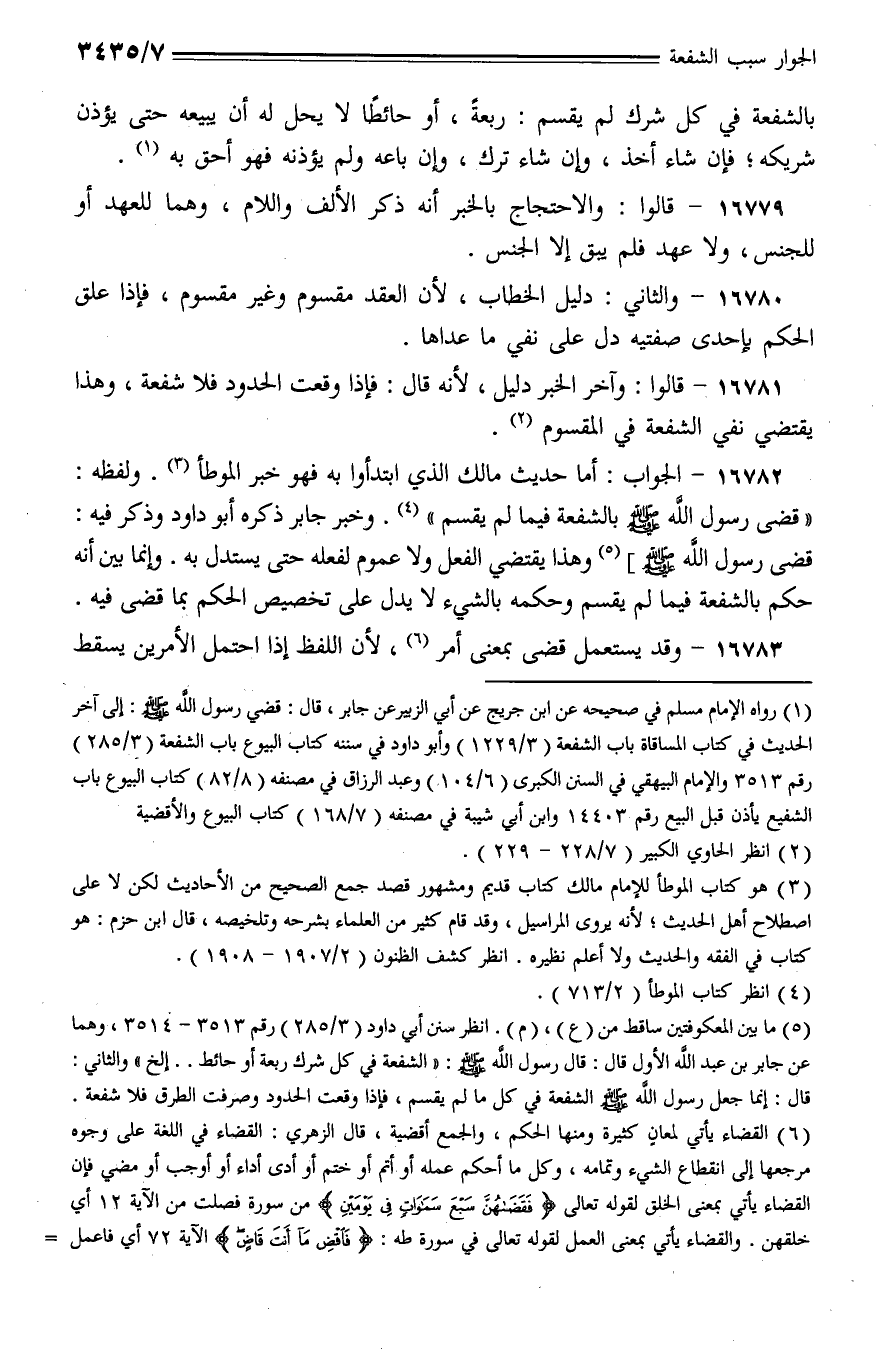 الجوار سبب الشفعة ٣٤٣٥/٧
بالشفعة في كل شرك لم يقسم : ربعةً ، أو حائطًا لا يحل له أن يبيعه حتى يؤذن
شريكه ؛ فإن شاء أخذ ، وإن شاء ترك ، وإن باعه ولم يؤذنه فهو أحق به (١) .
١٦٧٧٩ - قالوا : والاحتجاج بالخبر أنه ذكر الألف واللام ، وهما للعهد أو
للجنس ، ولا عهد فلم يبق إلا الجنس .
١٦٧٨٠ - والثاني : دليل الخطاب ، لأن العقد مقسوم وغير مقسوم ، فإذا علق
الحكم بإحدى صفتيه دل على نفي ما عداها .
١٦٧٨١ - قالوا : وآخر الخبر دليل ، لأنه قال : فإذا وقعت الحدود فلا شفعة ، وهذا
يقتضي نفي الشفعة في المقسوم (٢) .
١٦٧٨٢ - الجواب : أما حديث مالك الذي ابتدأوا به فهو خبر الموطأ (٣) . ولفظه :
« قضى رسول اللَّه ﷺ بالشفعة فيما لم يقسم » (٤) . وخبر جابر ذكره أبو داود وذكر فيه :
قضى رسول اللَّه ﷺ ] (٥) وهذا يقتضي الفعل ولا عموم لفعله حتى يستدل به . وإنما بين أنه
حكم بالشفعة فيما لم يقسم وحكمه بالشيء لا يدل على تخصيص الحكم بما قضى فيه .
١٦٧٨٣ - وقد يستعمل قضى بمعنى أمر (٦) ، لأن اللفظ إذا احتمل الأمرين يسقط
(١) رواه الإمام مسلم في صحيحه عن ابن جريج عن أبي الزبيرعن جابر ، قال : قضي رسول اللَّه ﷺ : إلى آخر
الحديث في كتاب المساقاة باب الشفعة ( ١٢٢٩/٣ ) وأبو داود في سننه كتاب البيوع باب الشفعة ( ٢٨٥/٣ )
رقم ٣٥١٣ والإمام البيهقي في السنن الكبرى ( ١٠٤/٦ ) وعبد الرزاق في مصنفه ( ٨٢/٨ ) كتاب البيوع باب
الشفيع يأذن قبل البيع رقم ١٤٤٠٣ وابن أبي شيبة في مصنفه ( ١٦٨/٧ ) كتاب البيوع والأقضية
(٢) انظر الحاوي الكبير ( ٢٢٨/٧ - ٢٢٩ ) .
(٣) هو كتاب الموطأ للإمام مالك كتاب قديم ومشهور قصد جمع الصحيح من الأحاديث لكن لا على
اصطلاح أهل الحديث ؛ لأنه يروى المراسيل ، وقد قام كثير من العلماء بشرحه وتلخيصه ، قال ابن حزم : هو
كتاب في الفقه والحديث ولا أعلم نظيره . انظر كشف الظنون ( ١٩٠٧/٢ - ١٩٠٨ ) .
(٤) انظر كتاب الموطأ ( ٧١٣/٢ ) .
(٥) ما بين المعكوفتين ساقط من (ع) ، (م) . انظر سنن أبي داود ( ٢٨٥/٣ ) رقم ٣٥١٣ - ٣٥١٤ ، وهما
عن جابر بن عبد اللَّه الأول قال : قال رسول اللَّه ﷺ : « الشفعة في كل شرك ربعة أو حائط . . إلخ » والثاني :
قال : إنما جعل رسول اللَّه ﷺ الشفعة في كل ما لم يقسم ، فإذا وقعت الحدود وصرفت الطرق فلا شفعة .
(٦) القضاء يأتي لمعانٍ كثيرة ومنها الحكم ، والجمع أقضية ، قال الزهري : القضاء في اللغة على وجوه
مرجعها إلى انقطاع الشيء وتمامه ، وكل ما أحكم عمله أو أتم أو ختم أو أدى أداء أو أوجب أو مضي فإن
القضاء يأتي بمعنى الخلق لقوله تعالى ﴿ فَقَضَىٰهُنَّ سَبْعَ سَمَٰوَاتٍ فِى يَوْمَيْنِ ﴾ من سورة فصلت من الآية ١٢ أي
خلقهن . والقضاء يأتي بمعنى العمل لقوله تعالى في سورة طه : ﴿ فَاقْضِ مَآ أَنتَ قَاضٍ ۖ ﴾ الآية ٧٢ أي فاعمل =